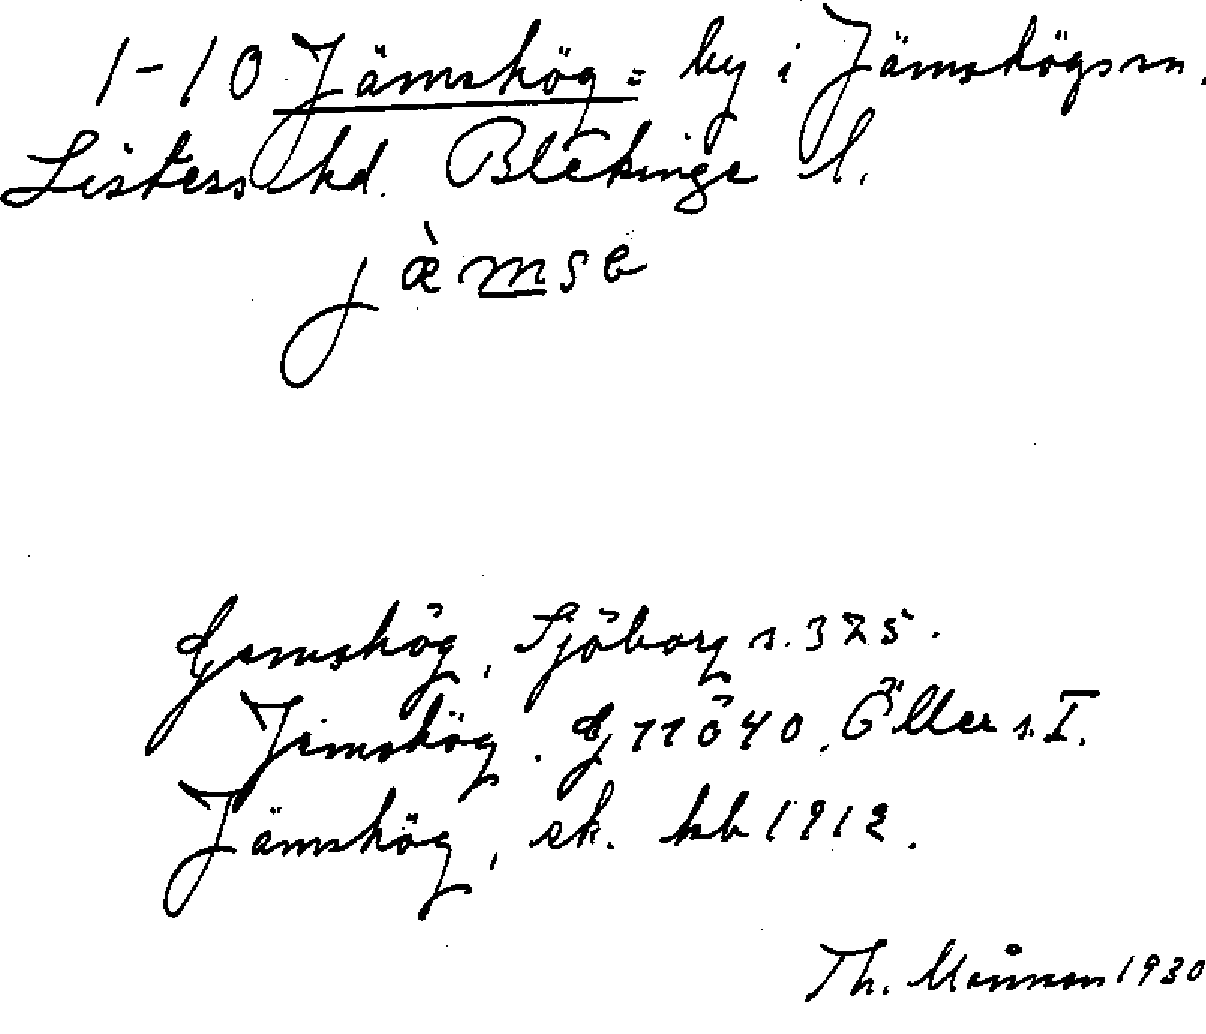 1-10 Jämshög = by i Jämshögs sn.
Listers hd. Blekinge l.
jæ̀mse
Gemshög, Sjöborg s. 325.
Jemshög. G 11040, Öller s. I.
Jämshög, sk. kb 1912.
Th. 1930